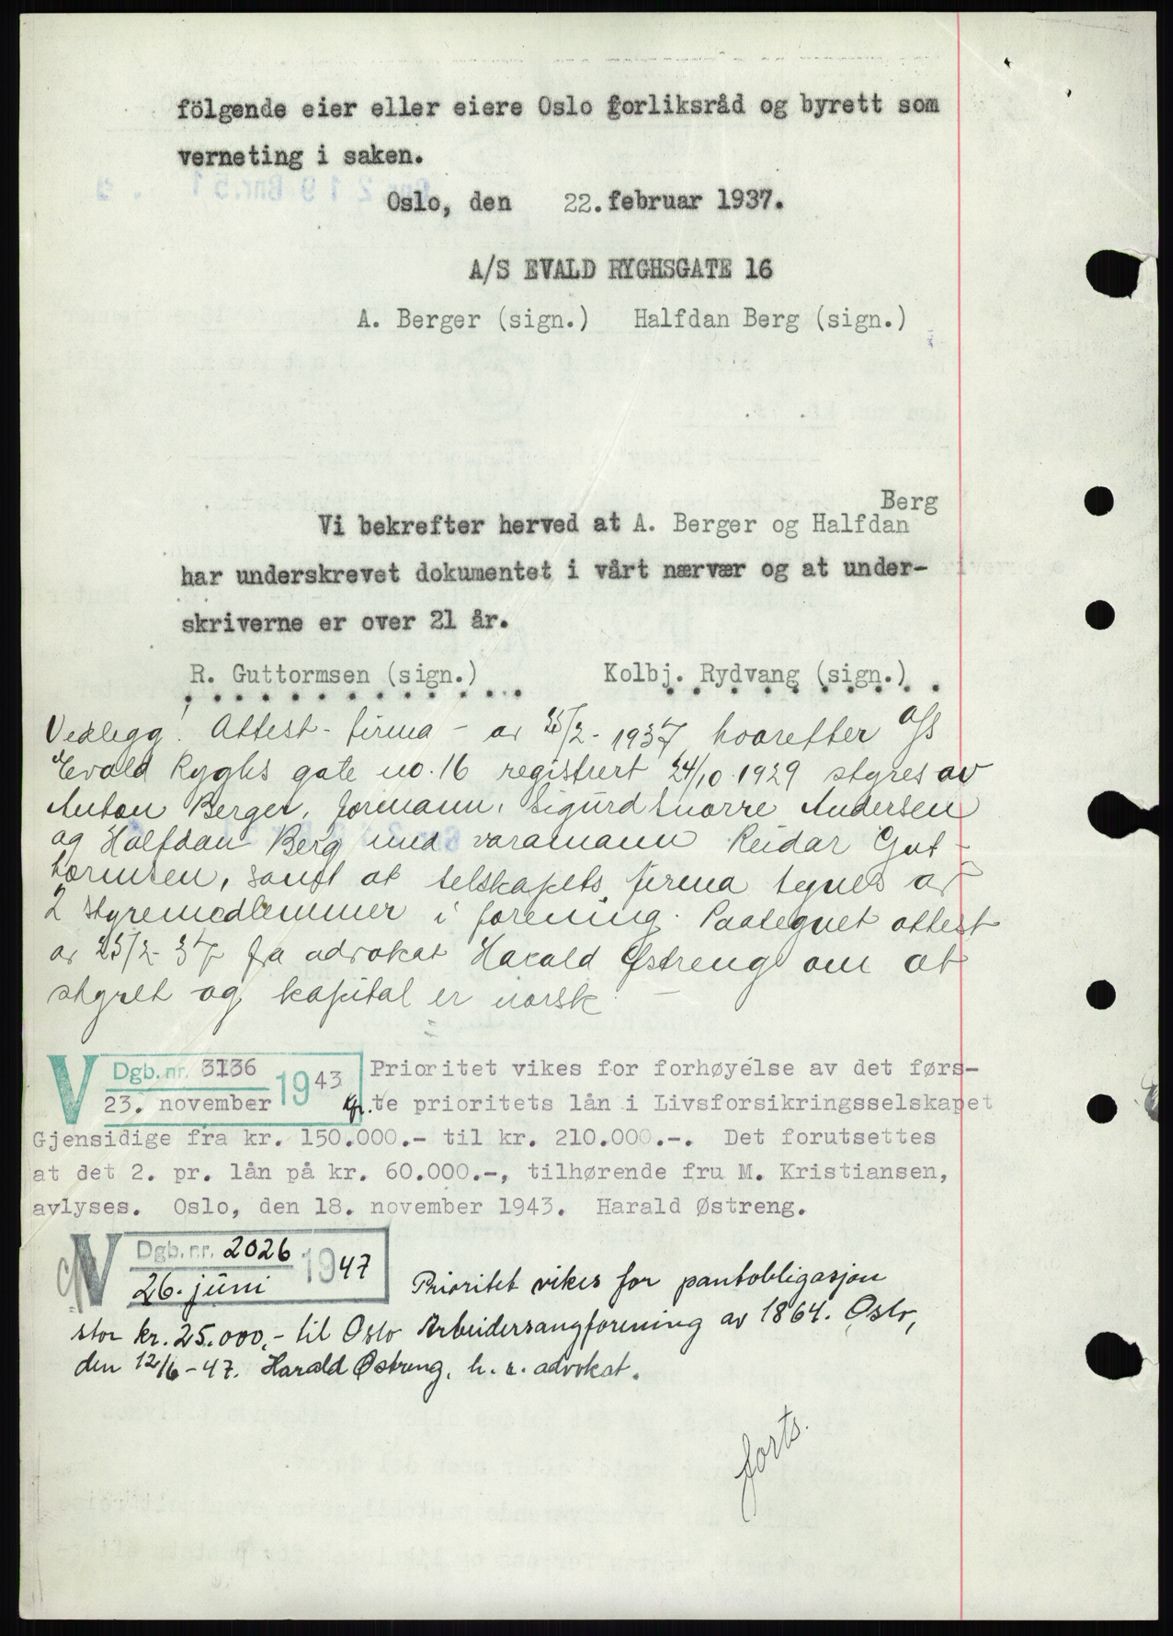 fölgende eier eller eiere Oslo forliksråd og byrett som
verneting i saken.
Oslo, den 22. februar 1937.
A/S EVALD RYGHSGATE 16
A. Berger (sign.) Halfdan Berg (sign.)
Berg
Vi bekrefter herved at A. Berger og Halfdan
har underskrevet dokumentet i vårt nærvær og at under-
skriverne er over 21 år.
R. Guttormsen (sign.) Kolbj. Rydvang (sign.)
Vedlegg: Attest - firma - av 25/2-1937 hvorefter A/S
Evald Ryghs gate no. 16 registrert 24/10.1929 styres av
Anton Berger, formann, Sigurd Snorre Andersen
og Halfdan Berg med varamann Reidar Gut-
tormsen, samt at selskapets firma tegnes av
2 styremedlemmer i forening. Paategnet attest
av 25/2-37 fra advokat Harald Østreng om at
styret og kapital er norsk.
V Dgb. nr. 3136 1943 Prioritet vikes for forhøyelse av det førs-
23. november te prioritets lån i Livsforsikringsselskapet
Gjensidige fra kr. 150.000.- til kr. 210.000.-. Det forutsettes
at det 2. pr. lån på kr. 60.000.-, tilhørende fru M. Kristiansen,
avlyses. Oslo, den 18. november 1943. Harald Østreng.
V Dgb. nr. 2026 1947
26. juni Prioritet vikes for pantobligasjon
stor kr. 25.000,- til Oslo Arbeidersangforening av 1864. Oslo,
den 12/6-47. Harald Østreng, h. r. advokat.
forts.